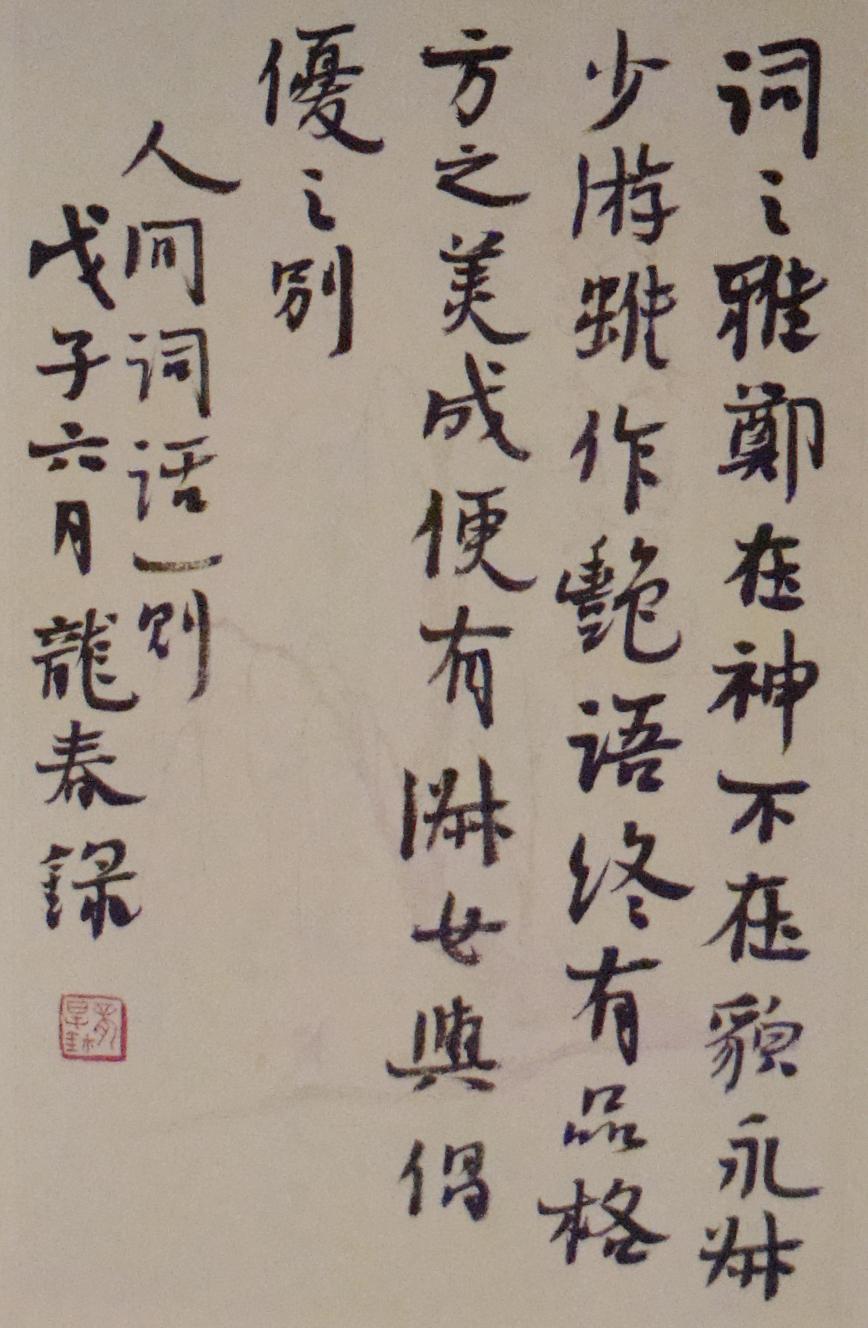 词之雅鄭在神不在貌永叔
少游雖作艷語終有品格
方之美成便有淑女與倡
優之别
人间词话一则
戊子六月龍春錄